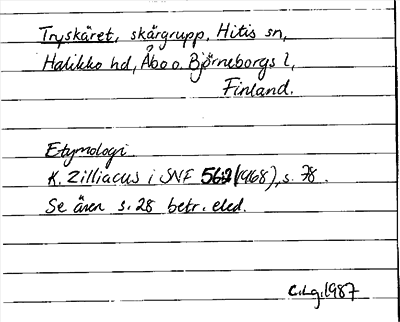 Tryskäret, skärgrupp, Hitis sn,
Halikko hd, Åbo o. Björneborgs l,
Finland.
Etymologi
K. Zilliacus i SNF 562 (1968), s. 78.
Se även s. 28 betr. eled.
C.Lg. 1987